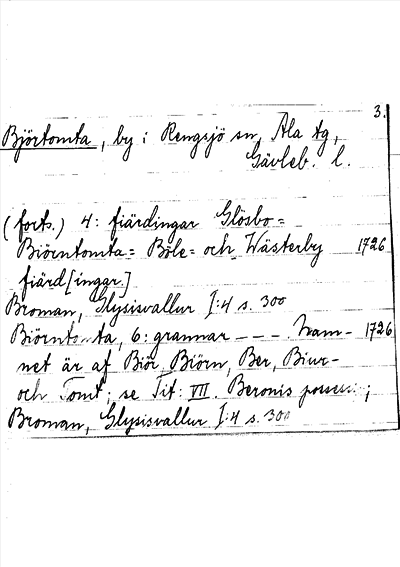 3.
Björtomta, by i Rengsjö sn, Ala tg,
Gävleb. l.
(forts.) 4: fiärdingar Glösbo=
Biörntomta= Böle= och Wästerby 1726
fiärd[ingar.]
Broman, Glysisvallur I:4 s. 300
Biörntomta, 6: grannar - - - . Nam- 1726
net är af Biör, Biörn, Ber, Biur-
och Tomt; se Tit: VII. Beronis ;
Broman, Glysisvallur I:4 s. 300